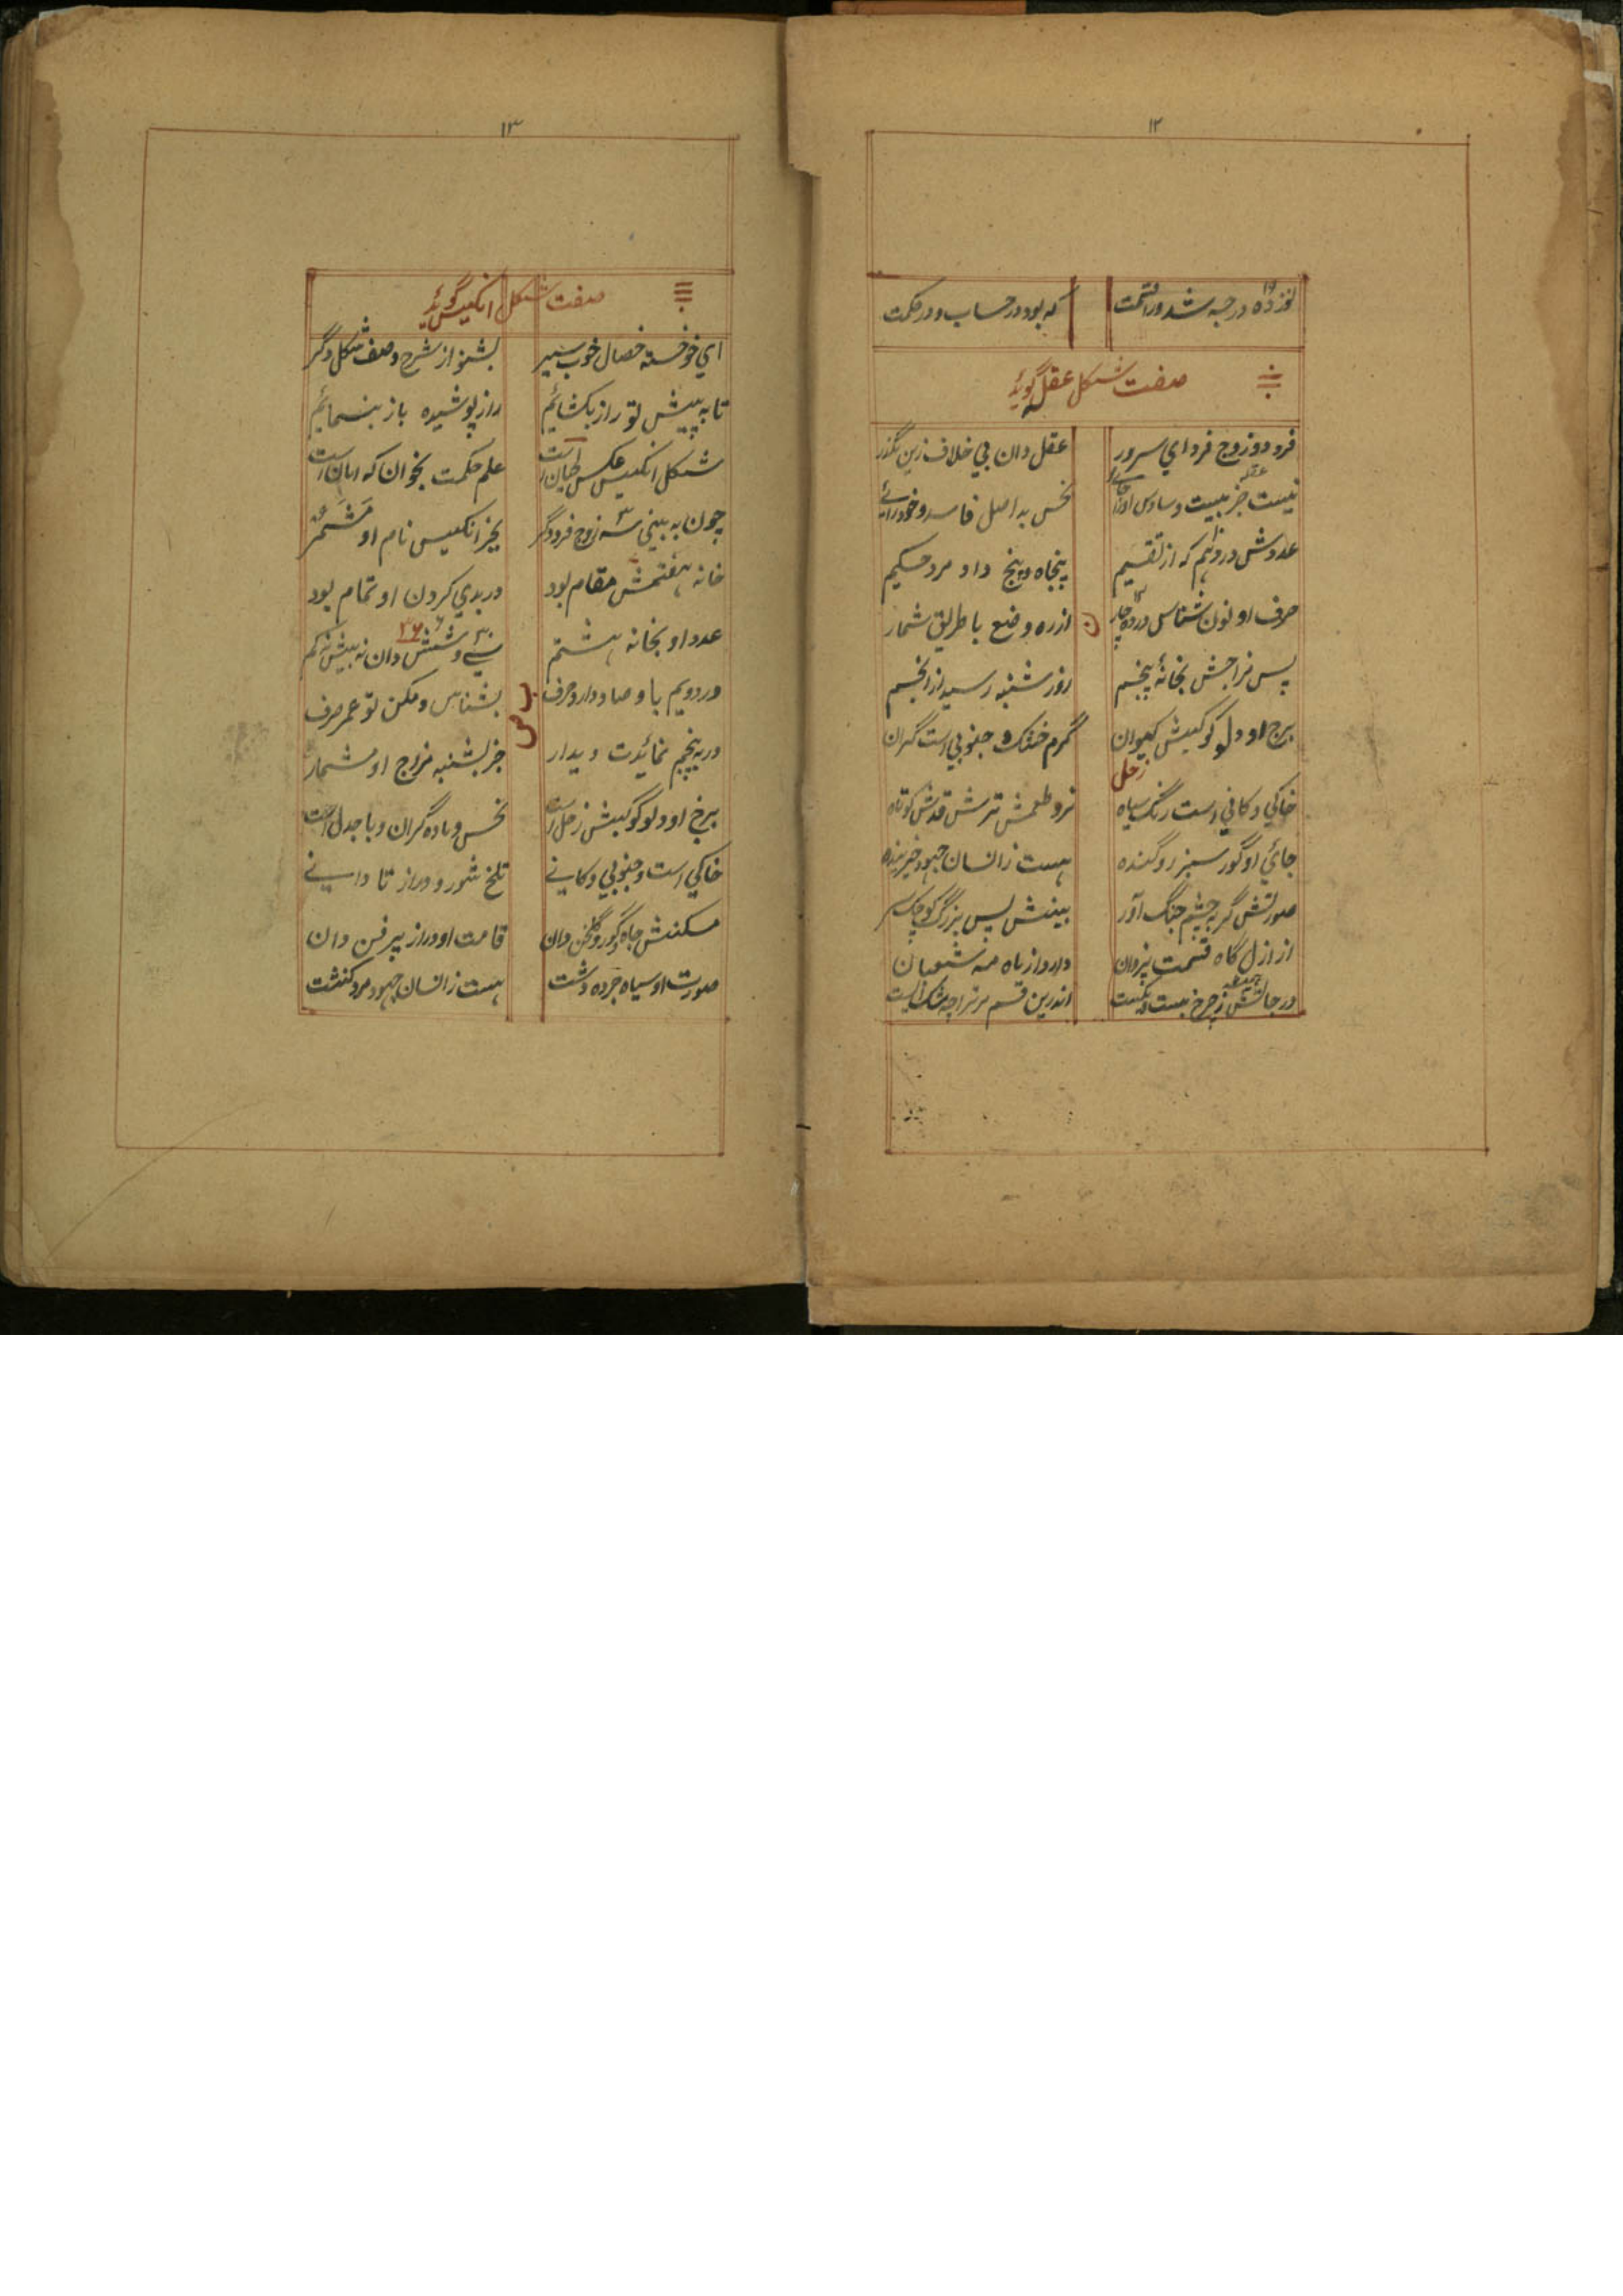 ۱۲
نوزده درجه شد ورا قسمت که بود در حساب و در حکمت
صفت شکل عقله گوید
فرد و دو زوج فرد اي سرور عقل دان بي خلاف زين مگذر
نيست جز بيت و سادس او را جائے نحس بد اصل فاسد و خودرائے
عددش در دهم که از تقسيم پنجاه و پنج داد مرد حکيم
حرف او نون شناس در ده چار ن از ره وضع با طريق شمار
پس مزاجش بخانهٔ پنجم روز شنبه رسيد از انجم
برج او دلو کوکبش کيوان گرم خشک و جنوبي است گران
زحل
خاکي و کاني است رنگ سياه نر و طعمش ترش قدش کوتاه
جائي او گور سبز رو گنده هست ز انسان جهود خربنده
صورتش گربه چشم جنگ آور بينش پس بزرگ کوچک سر
از ازل گاه قسمت يزدان دارد از ماه مه شعبان
درجاتش ز چرخ بيست و يکست اندرين قسم مر ترا چه شک است
۱۳
صفت شکل انکيس گويد
اي خوخسته خصال خوب سير بشنو از شرح وصف شکل دگر
تا به پيش تو راز بکشائيم راز پوشيده باز بنمائيم
شکل انکيس عکس لحيان است علم حکمت بخوان که امان است
چون به بيني سه زوج فرد و گر بجز انکيس نام او مشمر
خانه هفتمش مقام بود در بدي کردن او تمام بود
عدد او بخانه هشتم سي و شش دان نه بيش نه کم
۳۶
در دويم با و صاد دارد حرف ب ص بشناس و مکن تو عمر صرف
در به پنجم نمائدت ديدار جز بشنبه مزاج او مشمار
برج او دلو کوکبش زحل است نحس و ماده گران و با جدل است
خاکي است و جنوبي و کاني تلخ شور و دراز تا داني
مسکنش چاه و گور و گلخن دان قامت او دراز پير فن دان
صورت او سياه چرده و شت هست ز انسان جهود مرد کنشت